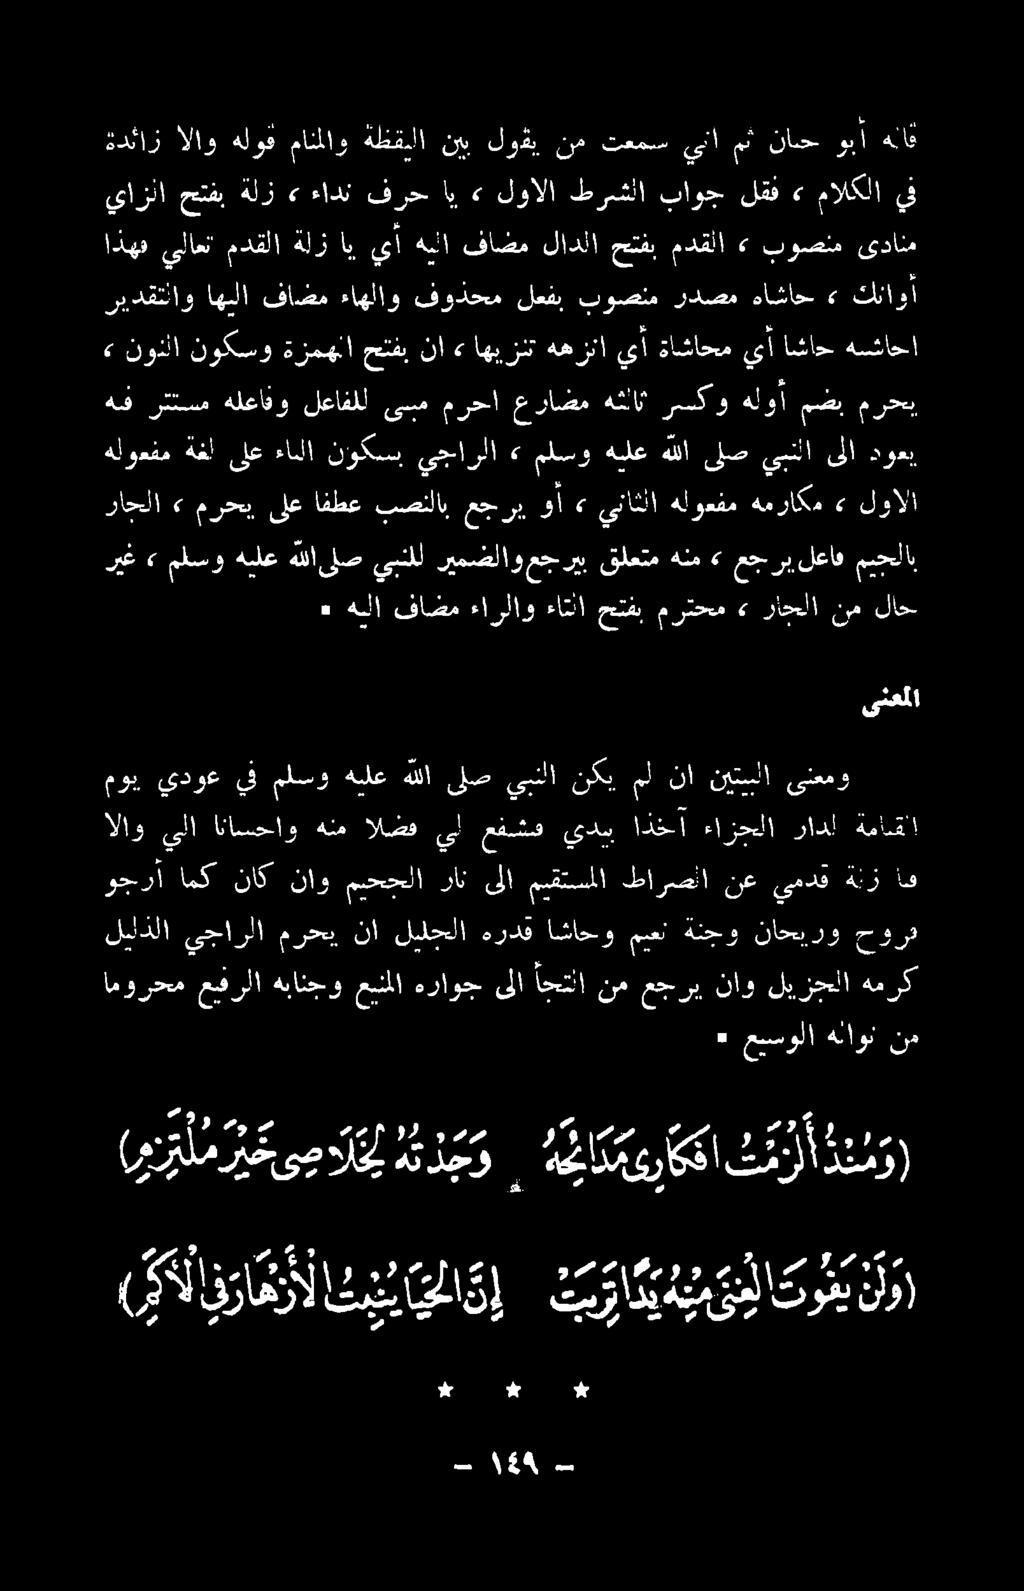 قاله أبو حيان ثم اني سمعت من يقول بين اليقظة والمنام قوله والا زائدة
في الكلام ، فقل جواب الشرط الاول ، يا حرف نداء ، زلة بفتح الزاي
منادى منصوب ، القدم بفتح الدال مضاف اليه أي يا زلة القدم تعالي فهذا
أوانك ، حاشاه مصدر منصوب بفعل محذوف والهاء مضاف اليها والتقدير
احاشيه حاشا أي محاشاة أي انزهه تنزيها ، ان بفتح الهمزة وسكون النون ،
يحرم بضم أوله وكسر ثالثه مضارع احرم مبني للفاعل وفاعله مستتر فيه
يعود الى النبي صلى الله عليه وسلم ، الراجي بسكون الياء على لغة مفعوله
الاول ، مكارمه مفعوله الثاني ، أو يرجع بالنصب عطفا على يحرم ، الجار
بالجيم فاعل يرجع ، منه متعلق بيرجع والضمير للنبي صلى الله عليه وسلم ، غير
حال من الجار ، محترم بفتح التاء والراء مضاف اليه .
المعنى
ومعنى البيتين ان لم يكن النبي صلى الله عليه وسلم في عودي يوم
القيامة لدار الجزاء آخذا بيدي فيشفع لي فضلا منه واحسانا الي والا
فيا زلة قدمي عن الصراط المستقيم الى نار الجحيم وان كان كما أرجو
فروح وريحان وجنة نعيم وحاشا قدره الجليل ان يحرم الراجي الذليل
كرمه الجزيل وان يرجع من التجأ الى جواره المنيع وجنابه الرفيع محروما
من نواله الوسيع .
(وَمُنْذُ أَلْزَمْتُ افْكَارِى مَدَائِحَهُ وَجَدْتُهُ لِخَلَاصِى خَيْرَ مُلْتَزِمِ)
(وَلَنْ يَفُوتَ الْغِنَى مِنْهُ يَدًا تَرِبَتْ إِنَّ الْحَيَا يُنْبِتُ الْأَزْهَارَ فِى الْأَكَمِ)
★ ★ ★
– ١٤٩ –